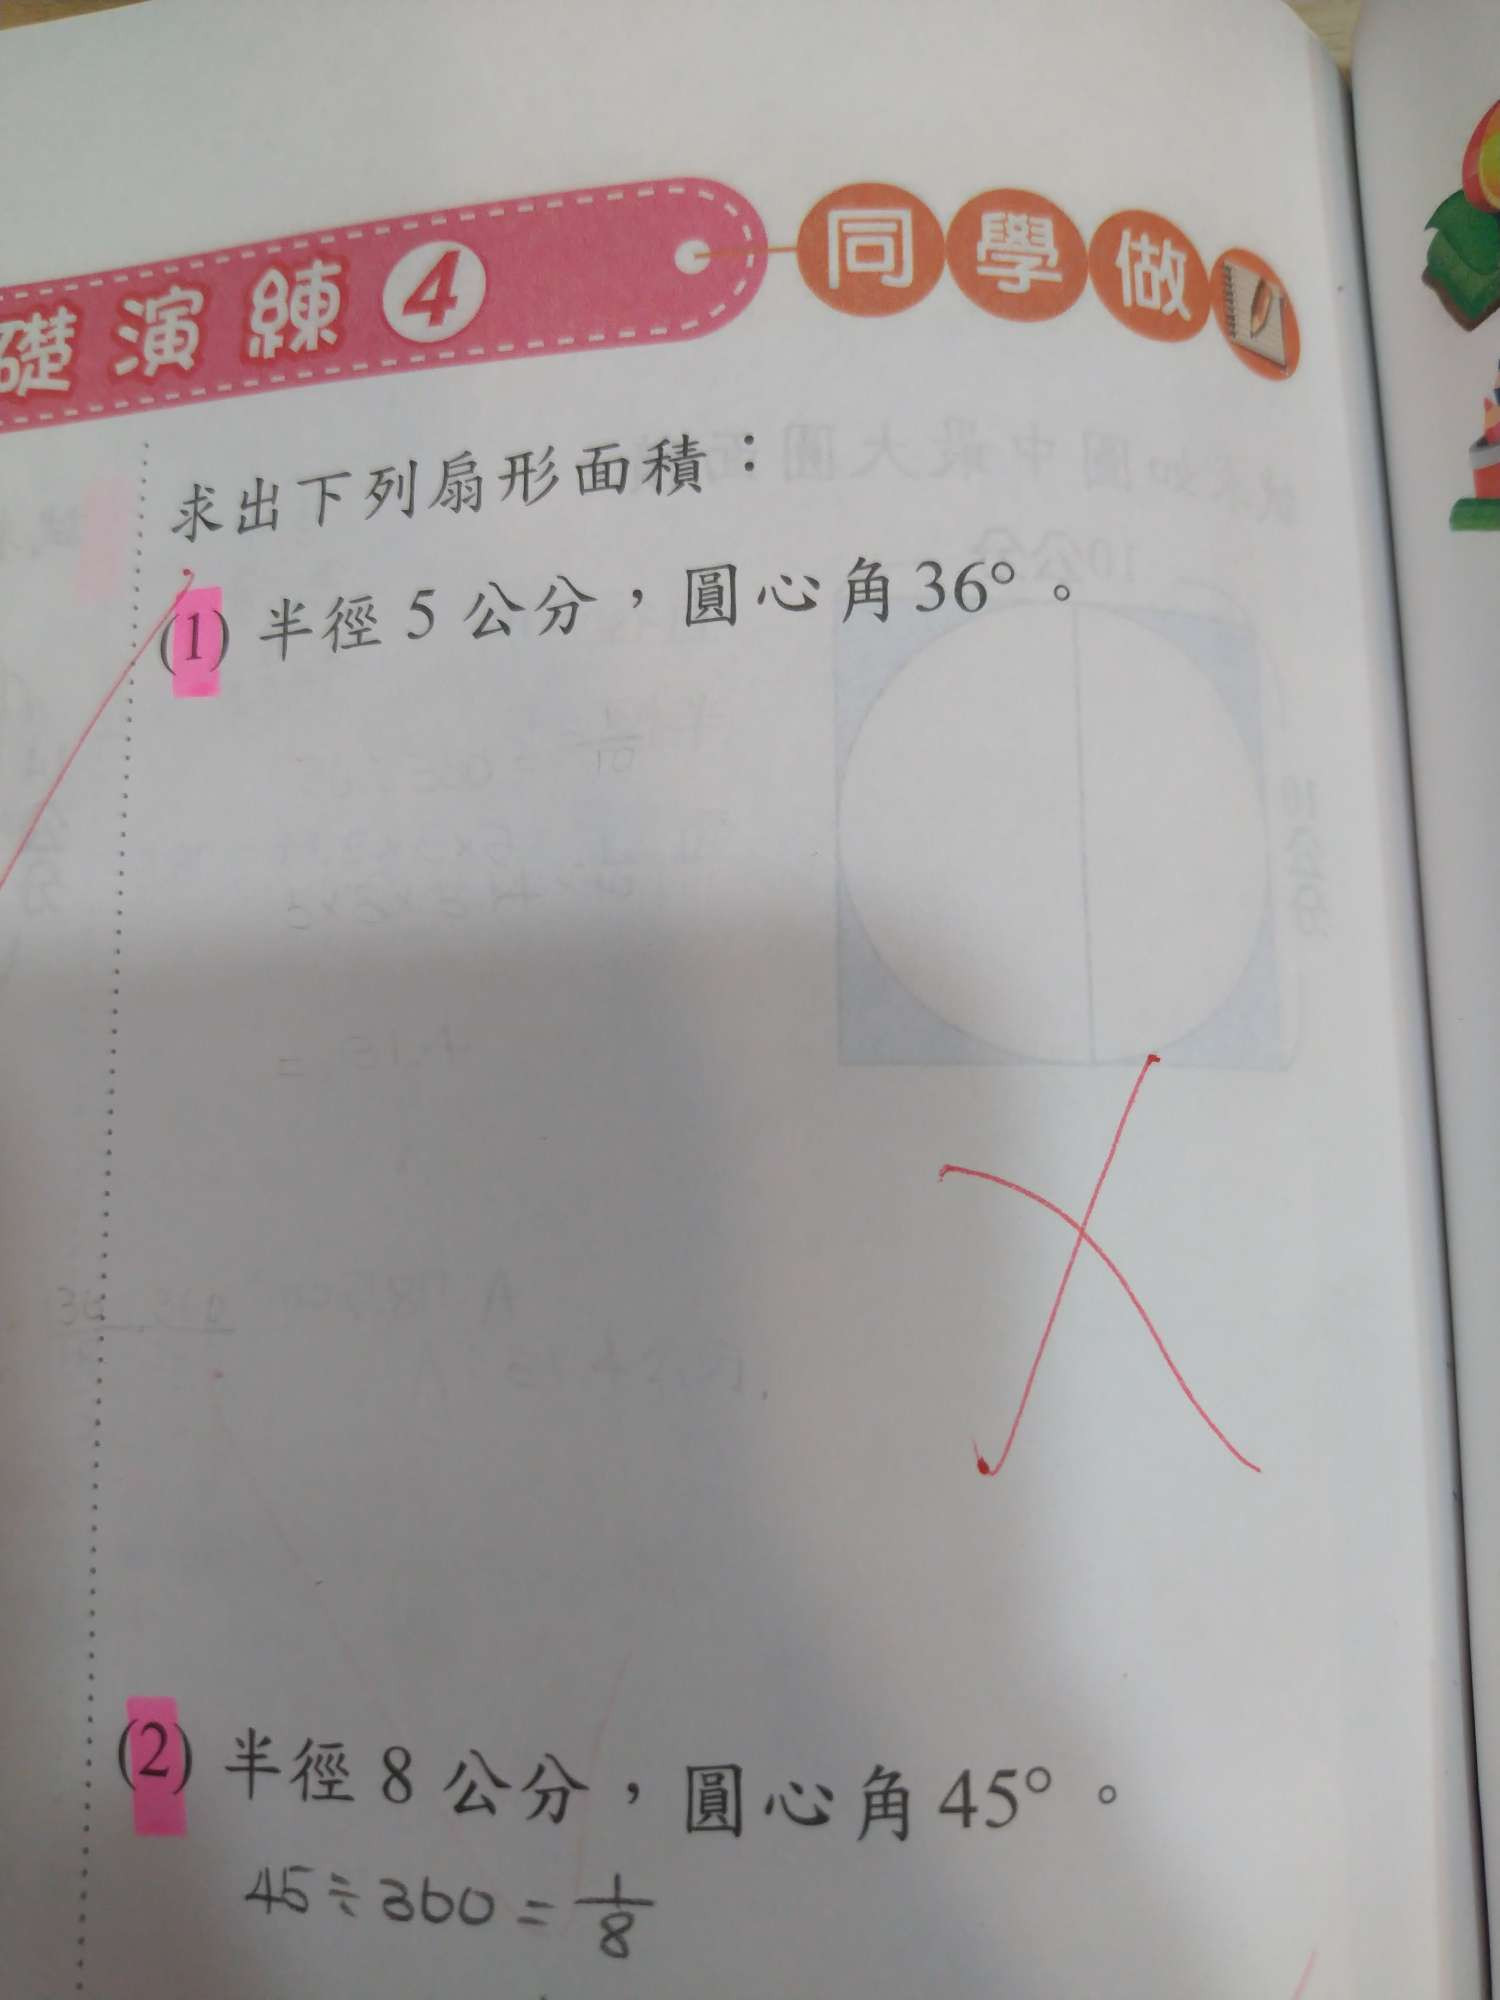 礎演練4 同學做
求出下列扇形面積：
(1) 半徑 5 公分，圓心角 36°。
(2) 半徑 8 公分，圓心角 45°。
45÷360=1/8